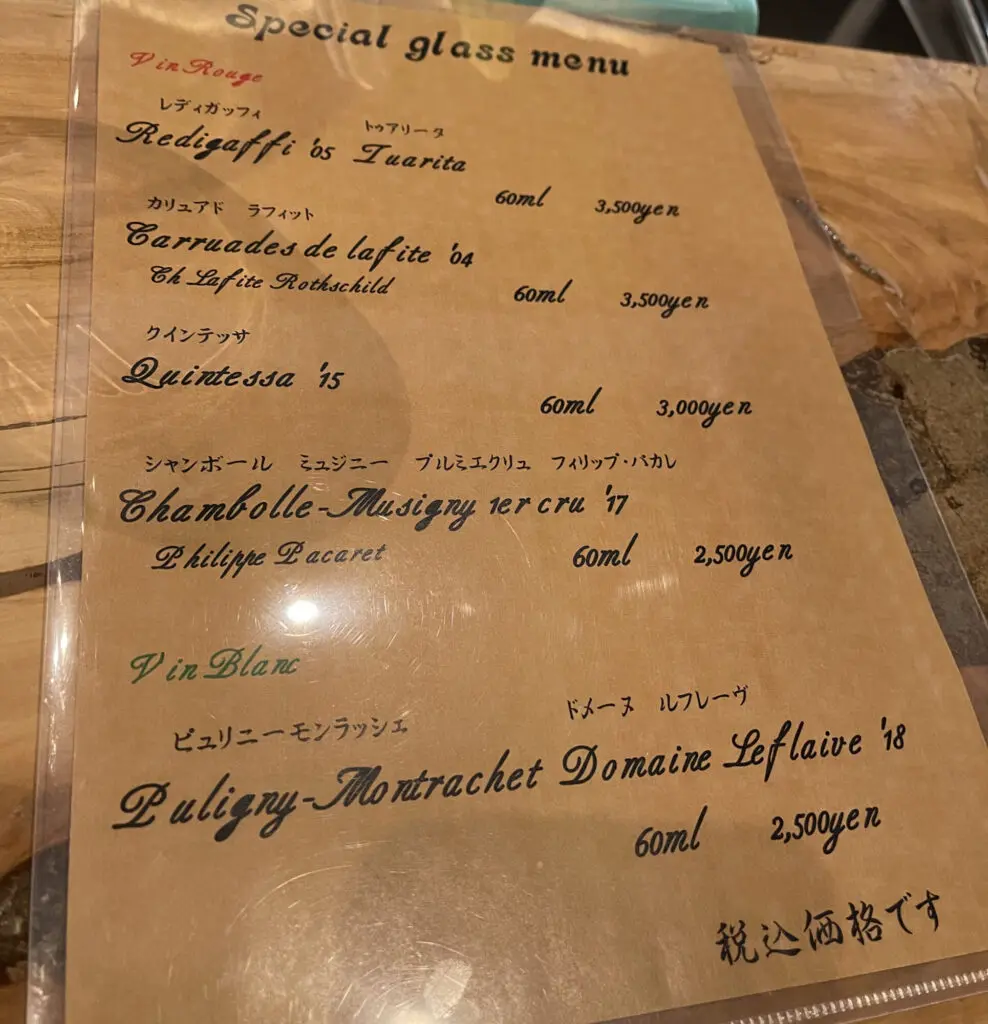 Special glass menu
Vin Rouge
レディガッフィ トゥアリータ
Redigaffi '05 Tuarita
60ml 3,500yen
カリュアド ラフィット
Carruades de lafite '04
Ch Lafite Rothschild
60ml 3,500yen
クインテッサ
Quintessa '15
60ml 3,000yen
シャンボール ミュジニー プルミエクリュ フィリップ・パカレ
Chambolle-Musigny 1er cru '17
Philippe Pacaret
60ml 2,500yen
Vin Blanc
ピュリニーモンラッシェ ドメーヌ ルフレーヴ
Puligny-Montrachet Domaine Leflaive '18
60ml 2,500yen
税込価格です